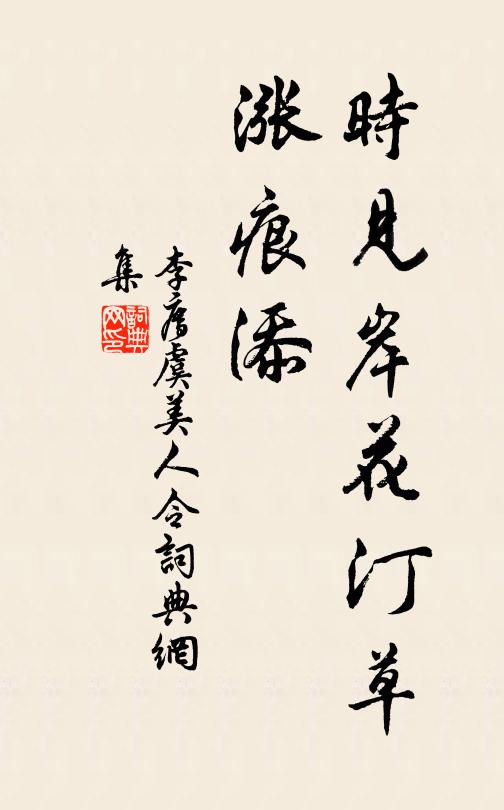 時見岸花汀草
漲痕添
李廌虞美人令詞典網
集
詞典
网印